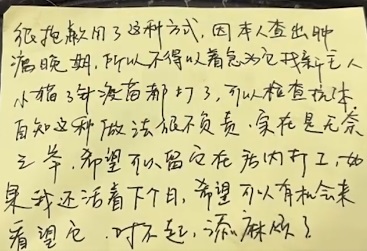 很抱歉用了这种方式，因本人查出肿
瘤晚期，所以不得以着急为它找新主人
小猫3针疫苗都打了，可以检查抗体.
自知这种做法很不负责，实在是无奈
之举，希望可以留它在店内打工，如
果我还活着下个月，希望可以有机会来
看望它．对不起，添麻烦了